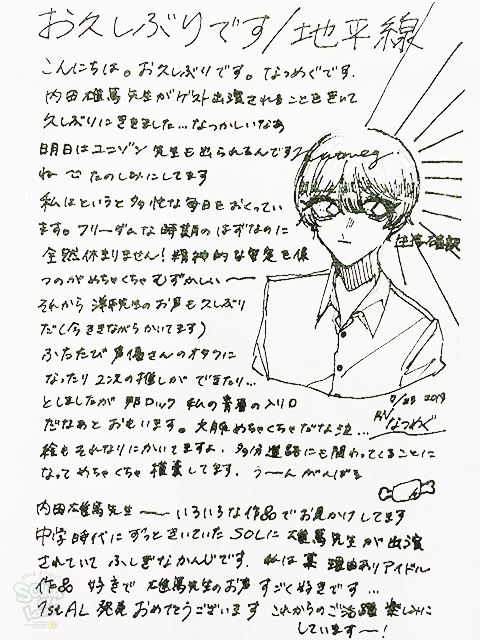 お久しぶりです/地平線
こんにちは。お久しぶりです。なつめぐです.
内田雄馬先生がゲスト出演されることをきいて
久しぶりにききました…なつかしいなあ
明日はユニゾン先生も出られるんです
ね たのしみにしてます
私はというと多忙な毎日をおくってい
ます。フリーダムな時期のはずなのに
全然休まりません!精神的な安定を保
つのがめちゃくちゃむずかしい〜
それから 洋平先生のお声も久しぶり
だ(今ききながらかいてます)
ふたたび 声優さんのオタクに
なったり 2次の推しが できたり…
としましたが 邦ロック 私の青春の入り口
だなあとおもいます。大服めちゃくちゃだな泣…
絵もそれなりにかいてますよ. 多分進路にも関わってくることに
なって めちゃくちゃ 模索してます. う〜んがんばる
nutmeg
生存確認
2019
RN なつめぐ
内田雄馬先生〜いろいろな作品でお見かけしてます
中学時代にずっときいていたSOLに 雄馬先生が出演
されていて ふしぎなかんじです. 私は某 理由ありアイドル
作品 好きで 雄馬先生のお声 すごく好きです…
1st AL 発売 おめでとうございます これからのご活躍 楽しみに
しています〜!